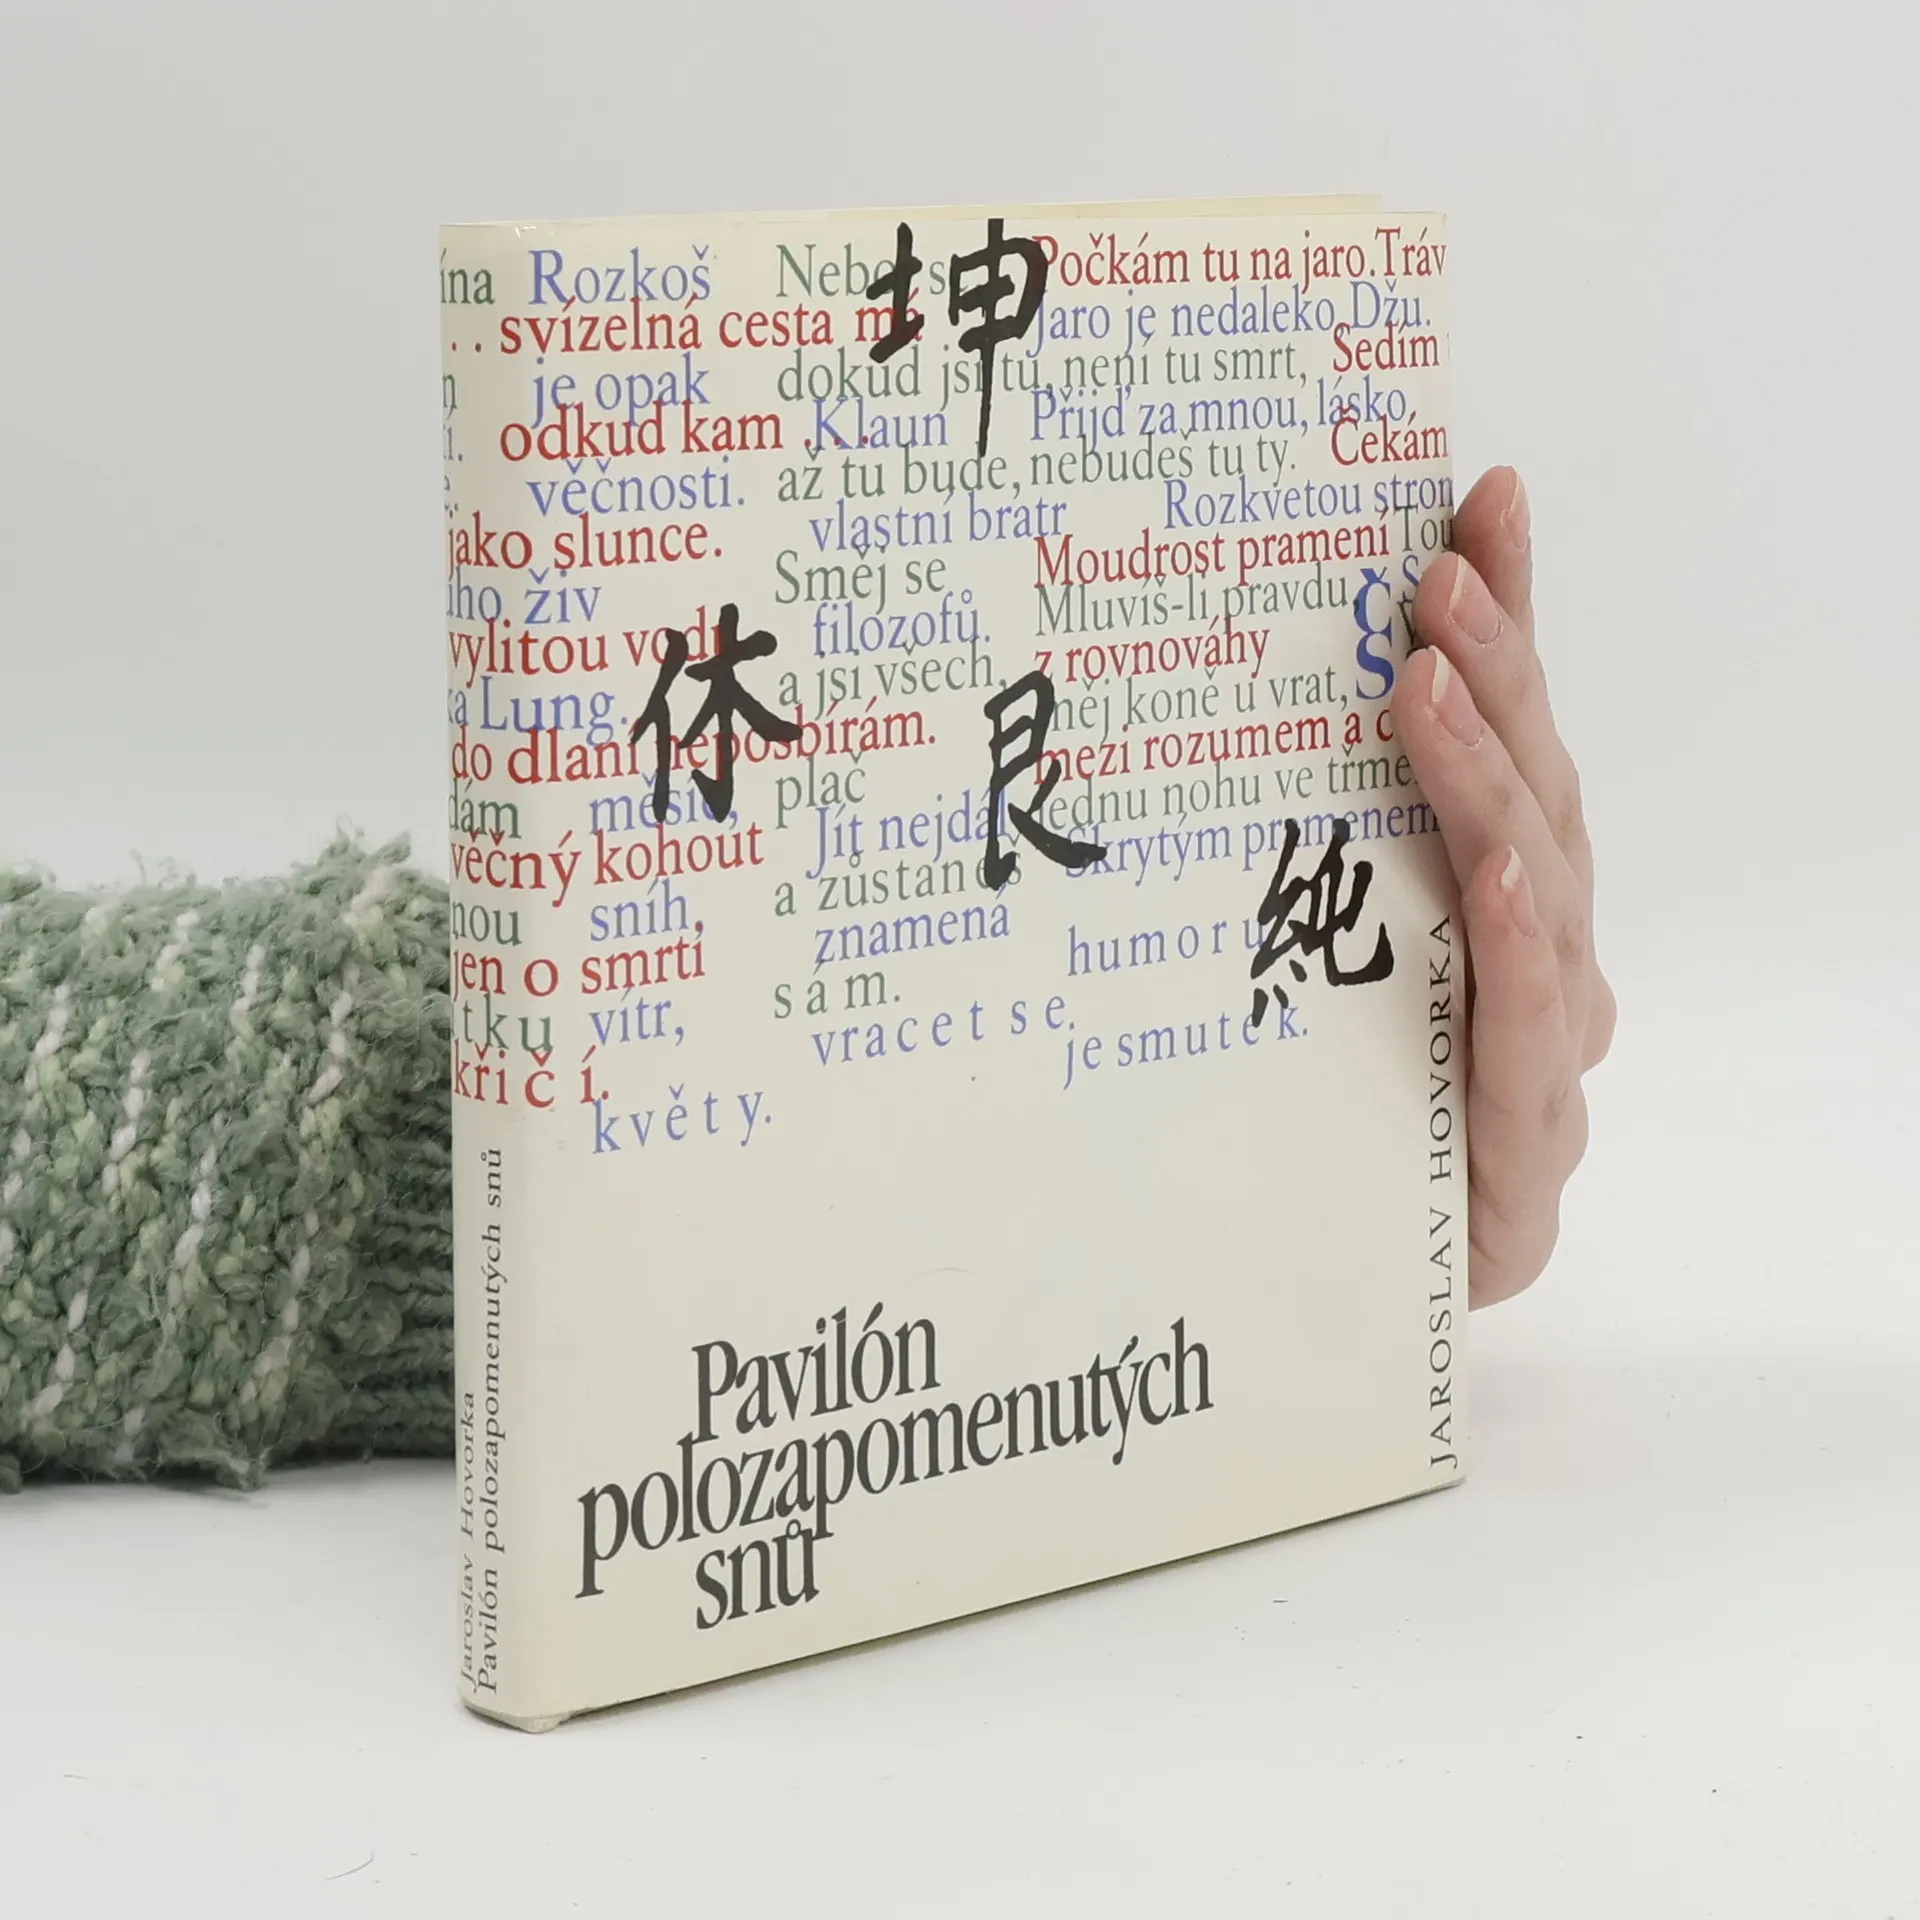 ína Rozkoš Neboj s Počkám tu na jaro. Tráv
. . svízelná cesta má Jaro je nedaleko, Džu.
je opak dokud jsi tu, není tu smrt, Sedím
í. odkud kam . . . Klaun Přijď za mnou, lásko,
věčnosti. až tu bude, nebudeš tu ty. Čekám
jako slunce. vlastní bratr Rozkvetou strom
živ Směj se Moudrost pramení Tou
vylitou vodu filozofů. Mluvíš-li pravdu,
Lung. a jsi všech, z rovnováhy
do dlaní neposbírám. měj koně u vrat,
dám měsíc, plač mezi rozumem a c
věčný kohout Jít nejdál jednu nohu ve třme
nou sníh, a zůstaneš Skrytým pramenem
jen o smrti znamená humoru
tku vítr, sám.
křičí. vracet se. je smutek.
květy.
坤
休
艮
純
Pavilón
polozapomenutých
snů
JAROSLAV HOVORKA
Jaroslav Hovorka
Pavilón polozapomenutých snů